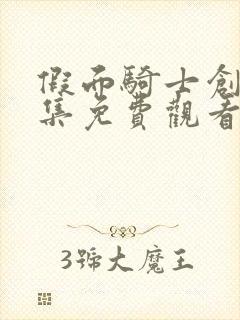 假面騎士創
集免費觀看
3號大魔王